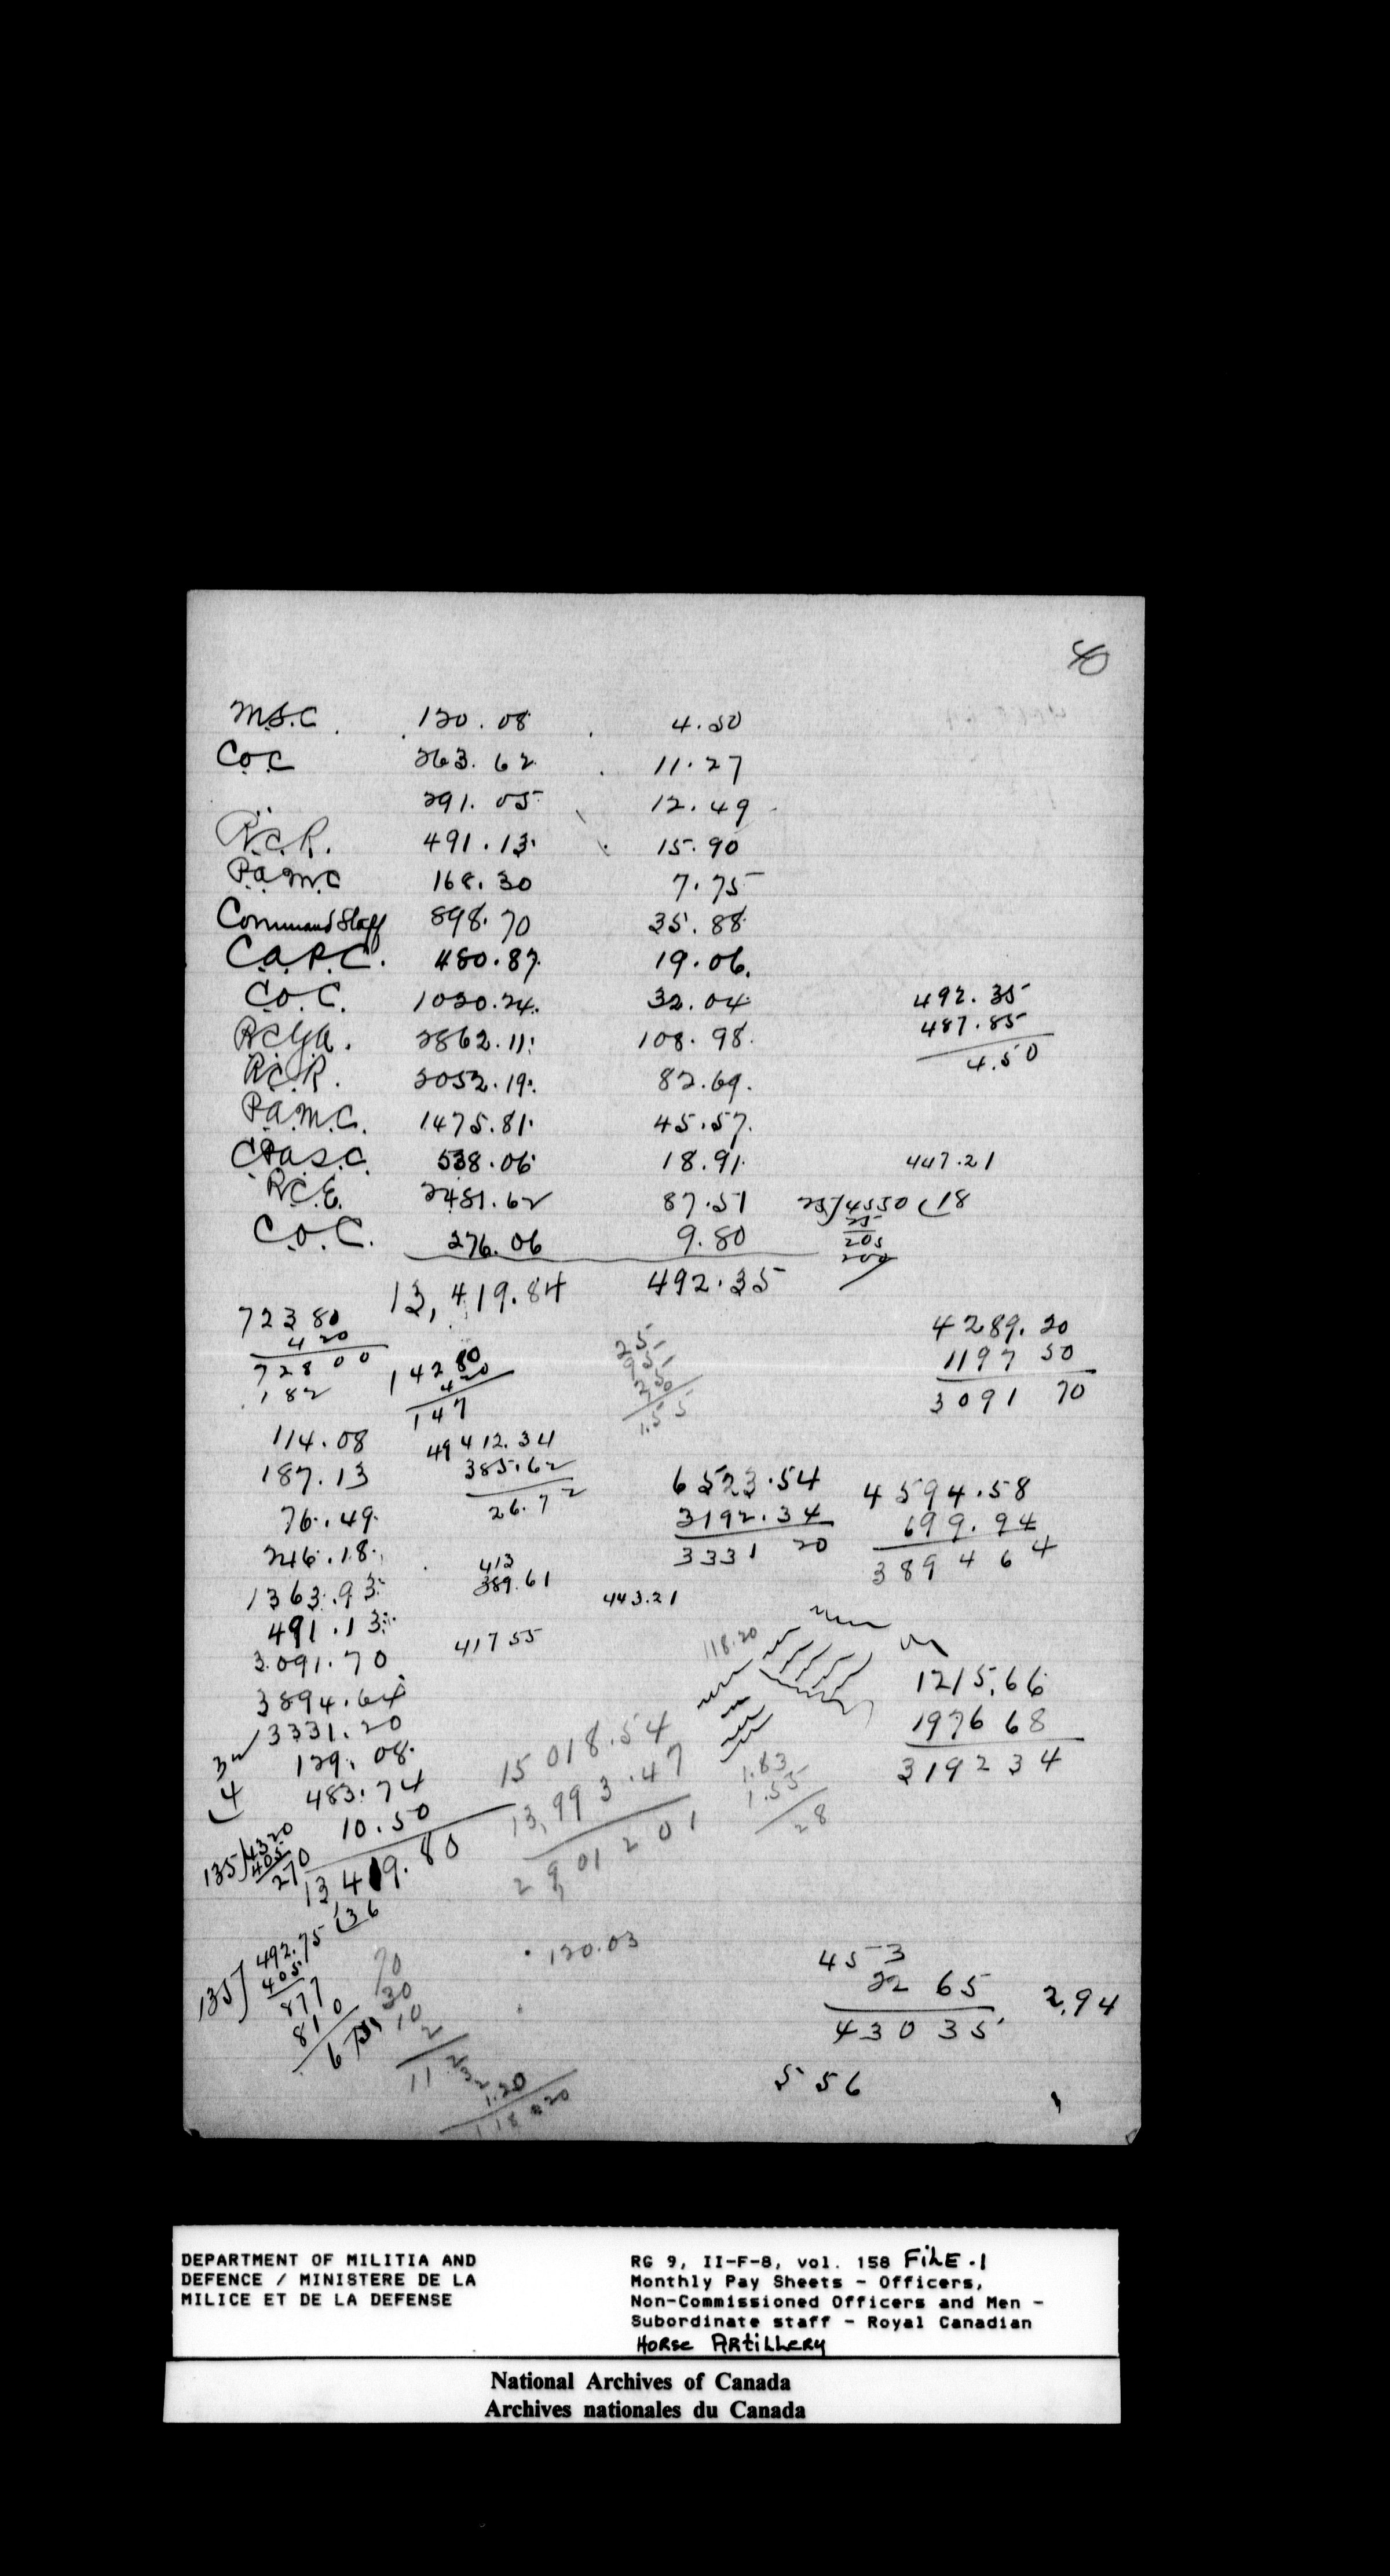 M.S.C. 120.08 4.50
C.O.C. 263.62 11.27
291.05 12.49
R.C.R. 491.13 15.90
P.A.M.C 168.30 7.75
Command Staff 898.70 35.88
C.A.P.C. 480.87 19.06
C.O.C. 1020.24 32.04
492.35
R.C.H.A. 2862.11 108.98
487.85
4.50
R.C.R. 2052.19 82.69
P.A.M.C. 1475.81 45.57
C.P.A.S.C. 538.06 18.91 447.21
R.C.E. 2481.62 87.51 25)4550(18
25
205
200
C.O.C. 276.06 9.80
13,419.84 492.35
72380
420
72800
182
14280
420
147
25
1.55
4289.20
1197 50
3091 70
114.08
187.13
76.49
246.18
1363.93
491.13
3091.70
3894.64
3331.20
129.08
483.74
10.50
13,419.80
49 412.34
385.62
26.72
413
389.61
443.21
417 55
6523.54
3192.34
3331 20
4594.58
699.94
3894 64
118.20
1215.66
1976 68
3192 34
15018.54
13,993.47
29,01201
1.83
1.55
28
32
4
135)4320
405
270
136
135)492.75
405
877
810
67
70
30
10
2
11
1.20
118 20
120.03
453
22 65
430 35
2.94
556
DEPARTMENT OF MILITIA AND
DEFENCE / MINISTERE DE LA
MILICE ET DE LA DEFENSE
RG 9, II-F-8, vol. 158 FiLE.1
Monthly Pay Sheets - Officers,
Non-Commissioned Officers and Men -
Subordinate staff - Royal Canadian
Horse ARtiLLeRy
National Archives of Canada
Archives nationales du Canada